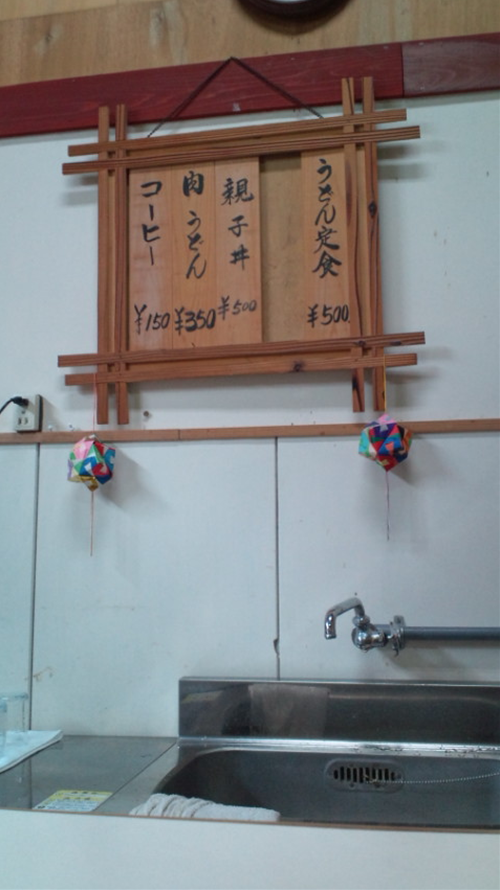 うどん定食 ¥500
親子丼 ¥500
肉うどん ¥350
コーヒー ¥150